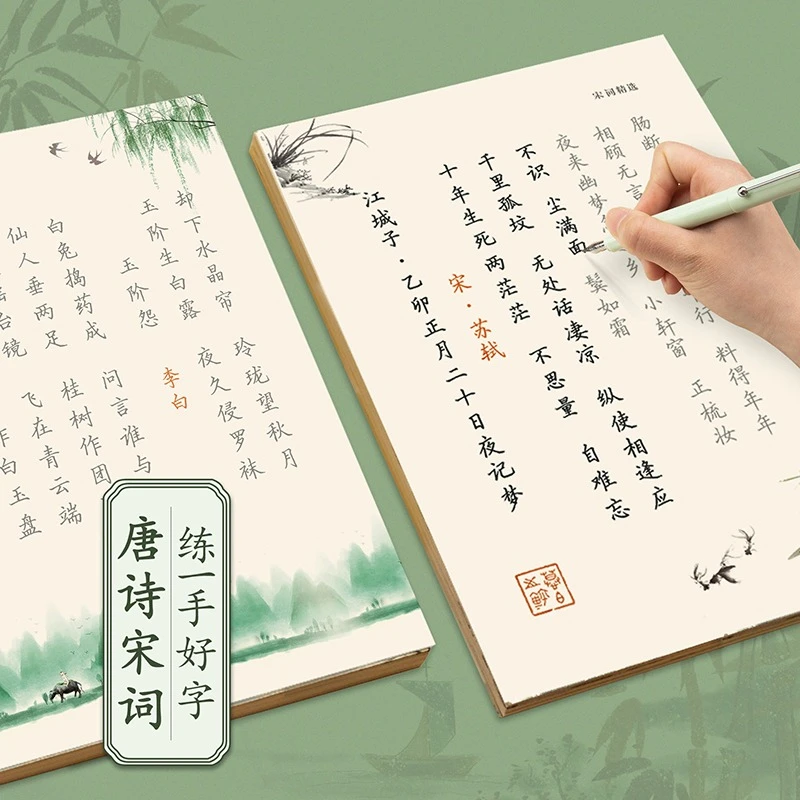 作白玉盘
台镜 飞在青云端
仙人垂两足 桂树作团
白兔捣药成 问言谁与
玉阶怨
李白
玉阶生白露 夜久侵罗袜
却下水晶帘 玲珑望秋月
宋词精选
江城子·乙卯正月二十日夜记梦
宋·苏轼
十年生死两茫茫 不思量 自难忘
千里孤坟 无处话凄凉 纵使相逢应
不识 尘满面 鬓如霜
夜来幽梦 乡 小轩窗 正梳妆
相顾无言 行 料得年年
肠断
练一手好字
唐诗宋词